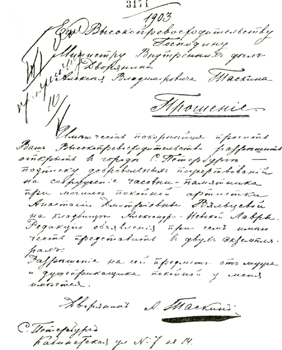 3171
1903
Его Высокопревосходительству
Господину
Министру Внутренних дел
Дворянина
Алексея Владимировича Таскина
Прошение
Имею честь покорнейше просить
Ваше Высокопревосходительство разрешить
открыть в городе С. Петербурге
подписку добровольных пожертвований
на сооружение часовни-памятника
при могиле покойной артистки
Анастасии Дмитриевны Вяльцевой
на кладбище Александро-Невской Лавры.
Редакцию объявления при сем имею
честь представить в двух экземпля-
рах.
Разрешение на сей предмет от мужа
и душеприказчика покойной у меня
имеется.
Дворянин А. Таскин
С. Петербург
Кабинетская ул № 7 кв 14.